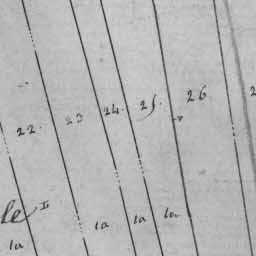 22. 23 24. 25. 26
le II
la la la la